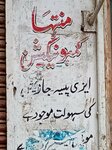 منتہا
کمیونیکیشن
ایزی پیسہ جاز
کی سہولت موجود ہے
موجود